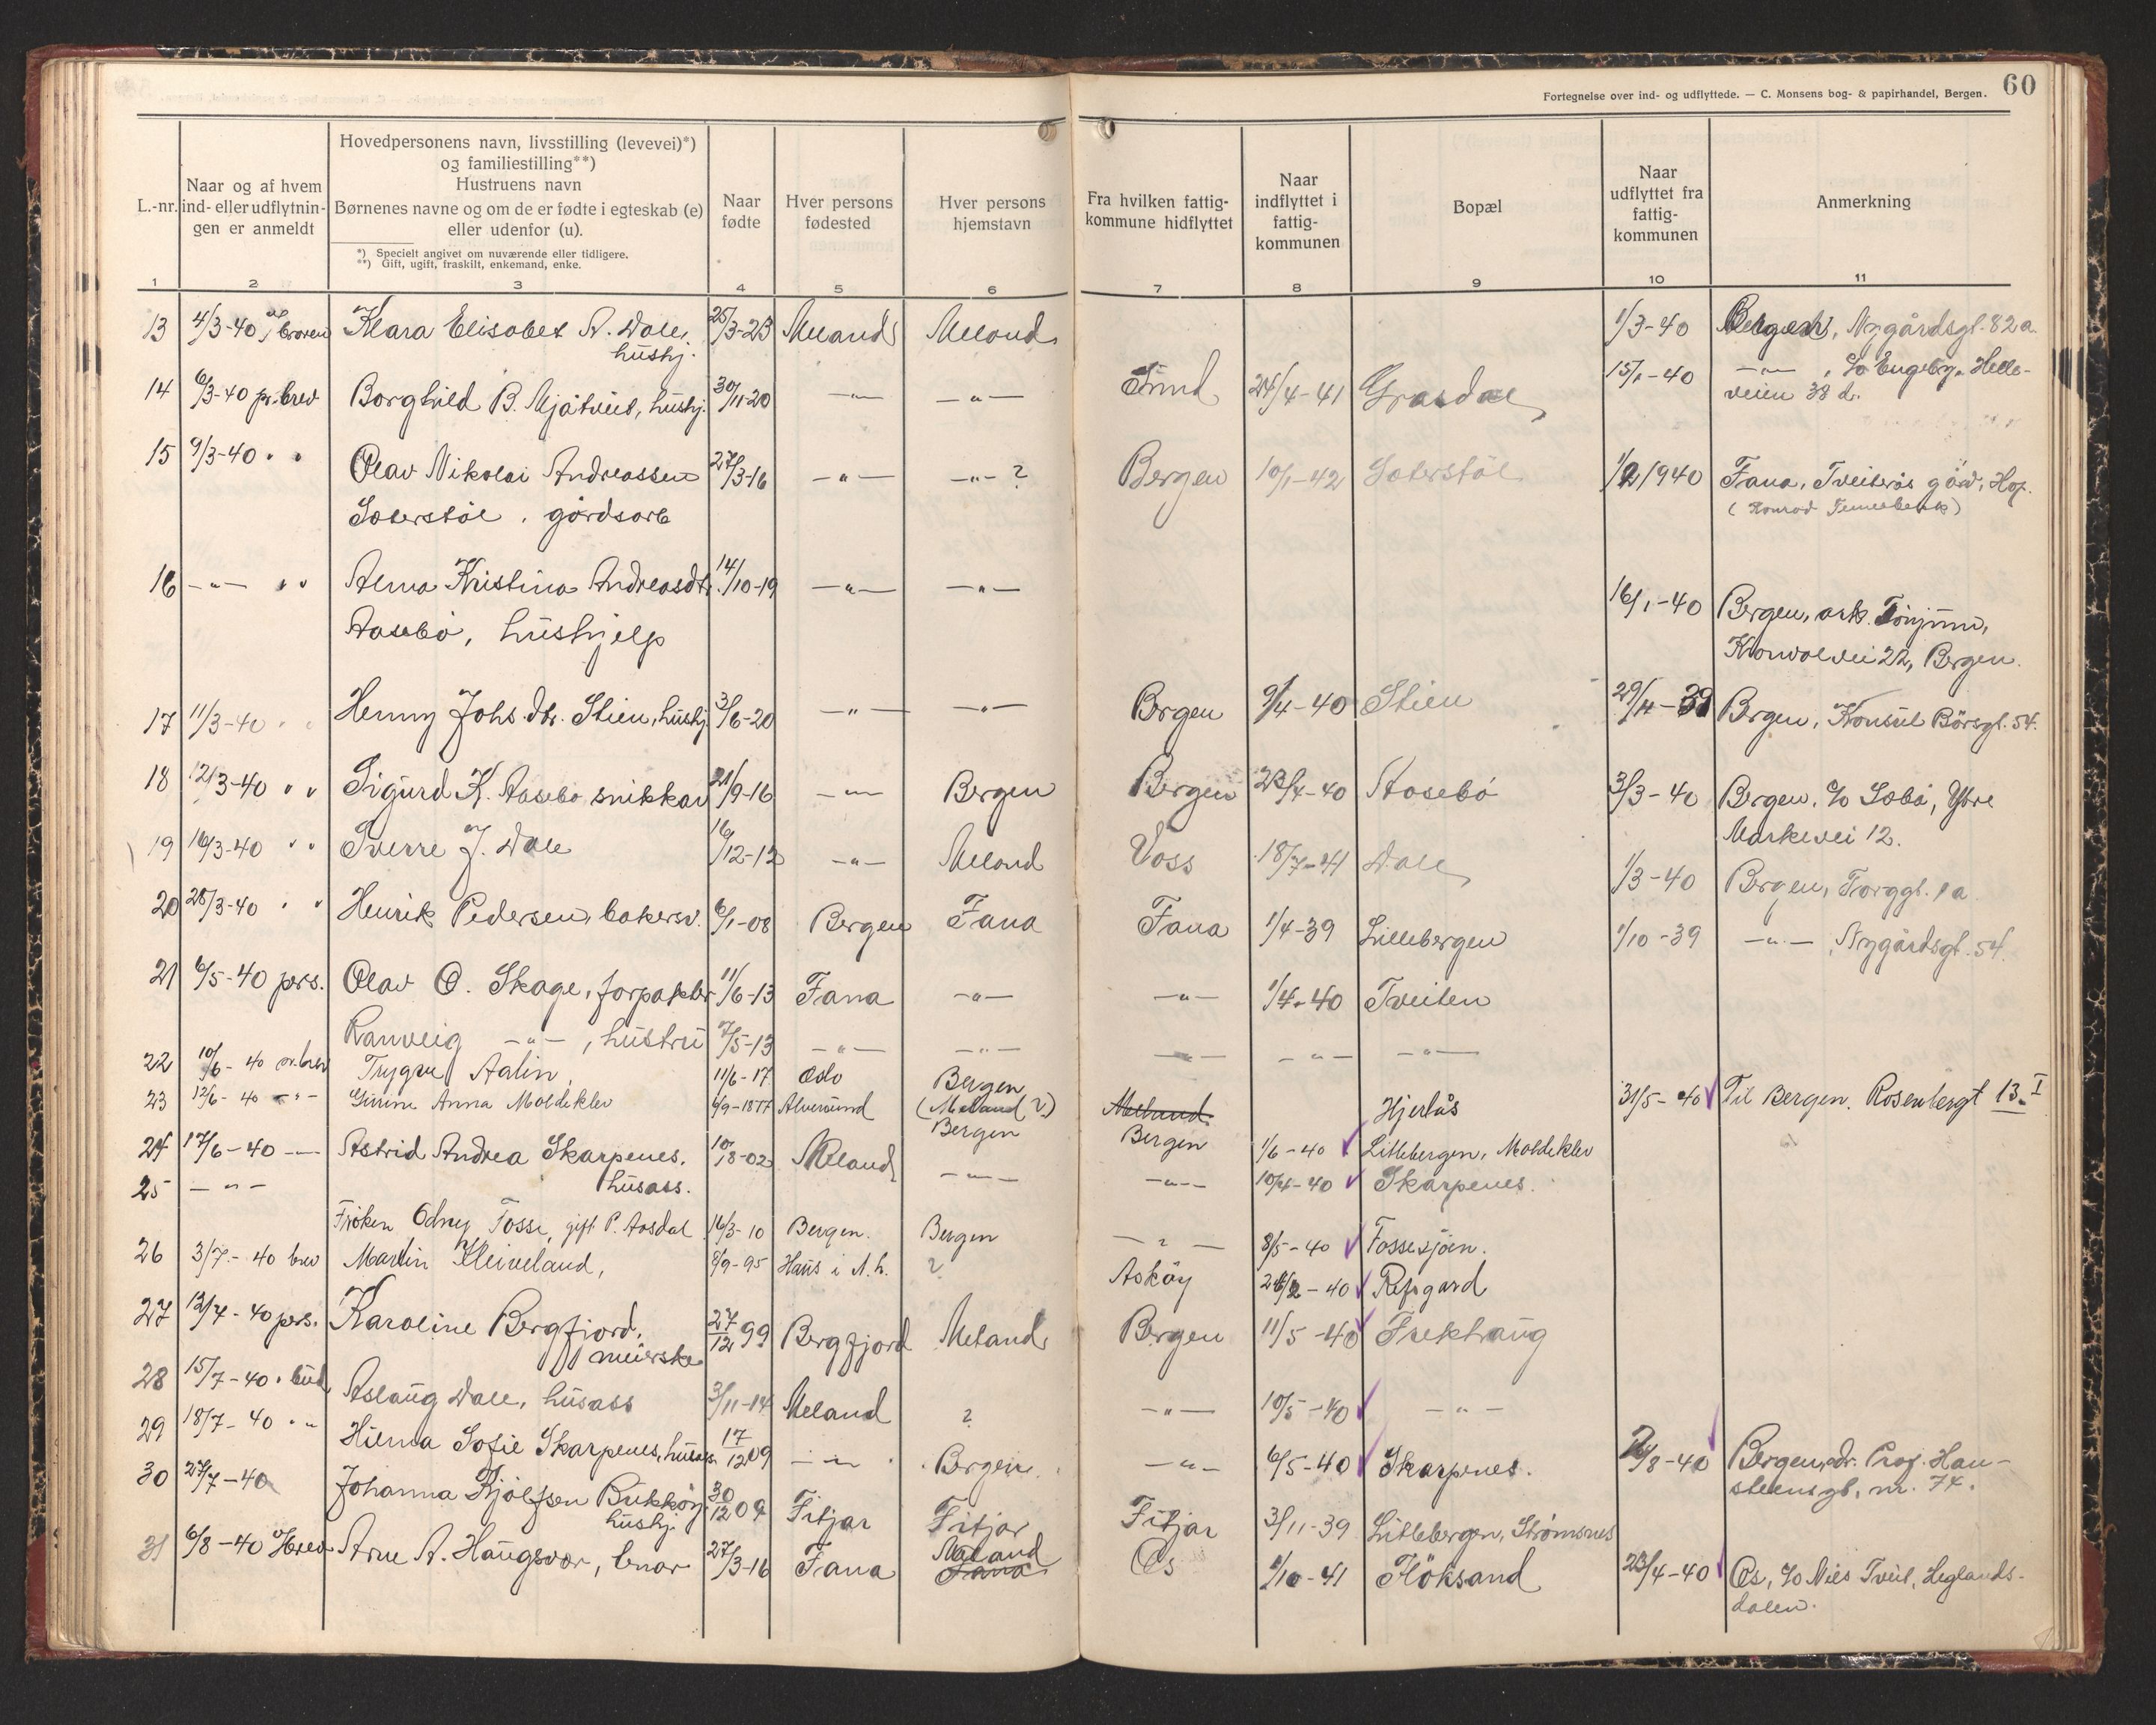 60
Fortegnelse over ind- og udflyttede. — C. Monsens bog- & papirhandel, Bergen.
L.-nr.
Naar og af hvem ind- eller udflytnin- gen er anmeldt
Hovedpersonens navn, livsstilling (levevei)*)
og familiestilling**)
Hustruens navn
Børnenes navne og om de er fødte i egteskab (e)
eller udenfor (u).
*) Specielt angivet om nuværende eller tidligere.
**) Gift, ugift, fraskilt, enkemand, enke.
Naar fødte
Hver persons fødested
Hver persons hjemstavn
Fra hvilken fattig- kommune hidflyttet
Naar indflyttet i fattig- kommunen
Bopæl
Naar udflyttet fra fattig- kommunen
Anmerkning
1 2 3 4 5 6 7 8 9 10 11
13 4/3-40 Klara Elisabet A. Dale, 25/3-23 Meland Meland 1/3-40 Bergen, Nygårdsgt. 82a.
hushj.
14 6/3-40 pr. brev Borghild B. Mjåtveit, hushj. 30/11-20 —"— —"— Sund 24/4-41 Grasdal 15/1-40 —"—, c/o Engeby, Helle-
veien 38 d.
15 9/3-40 " " Olav Nikolai Andreassen 27/3-16 —"— —"— ? Bergen 10/1-42 Sæterstøl 1/2 1940 Fana, Tveiterås gård, Hop.
Sæterstøl, gårdsarb
16 —"— " " Alma Kristina Andreasdtr. 14/10-19 —"— —"— 16/1-40 Bergen, ark.
Aasebø, hushjelp 22, Bergen.
17 11/3-40 " " Henny Johs.dtr. Stien, hushj. 3/6-20 —"— —"— Bergen 9/4-40 Stien 29/11-39 Bergen, Konsul Børsgt. 54.
18 12/3-40 " " Sigurd K. Aasebø snikkar 21/9-16 —"— Bergen Bergen 23/4-40 Aasebø 3/3-40 Bergen, c/o Sæbø, Ytre
Markevei 12.
19 16/3-40 " " Sverre J. Dale 16/12-12 —"— Meland Voss 18/7-41 Dale 1/3-40 Bergen, Torggt. 1a
20 28/3-40 " " Henrik Pedersen, bakersv. 6/1-08 Bergen Fana Fana 1/4-39 Lillebergen 1/10-39 —"—, Nygårdsgt. 54.
21 6/5-40 pers. Olav O. Skage, forpakter 11/6-13 Fana —"— —"— 1/4-40 Tveiten
Ranveig —"—, hustru 7/5-13 —"— —"— —"— —"— —"—
22 10/6-40 pr. brev Trygve Aalin, 11/6-17 Oslo Bergen Meland Hjertås 31/5-40 Til Bergen. Rosenbergt 13. I
23 12/6-40 —"— Anna Moldeklev 6/9-1877 Alversund (Meland ?) Bergen Bergen 1/6-40 Litlebergen, Moldeklev
24 17/6-40 —"— Astrid Andrea Skarpenes. 10/8-02 Meland —"— —"— 10/4-40 Skarpenes.
husass.
25 —"— Frøken Odny Fosse, gift P. Aasdal 16/3-10 Bergen. Bergen —"— 8/5-40 Fossesjøen.
26 3/7-40 brev Martin Kleiveland, 8/9-95 Haus i N.h. ? Askøy 24/2-40 Refsgard
27 12/7-40 pers. Karoline Bergfjord, 27/12 99 Bergfjord Meland Bergen 11/5-40 Frekhaug
meierske
28 15/7-40 " bud Aslaug Dale, husass 3/11-14 Meland ? —"— 10/5-40 —"—
29 18/7-40 " " Hilma Sofie Skarpenes, husass. 17/12 09 —"— Bergen —"— 6/5-40 Skarpenes. /8-40 Bergen, adr. Prof. Han-
steensgt. nr. 74.
30 27/7-40 Johanna Kjølfsen Bukkøy 30/12 09 Fitjar Fitjar Fitjar 3/11-39 Litlebergen, Strømsnes
hushj.
31 6/8-40 brev Arne A. Haugsvær, 27/3-16 Fana Meland Fana Os 1/10-41 Fløksand 23/4-40 Os, c/o Nils Tveit, Leglands-
dalen.